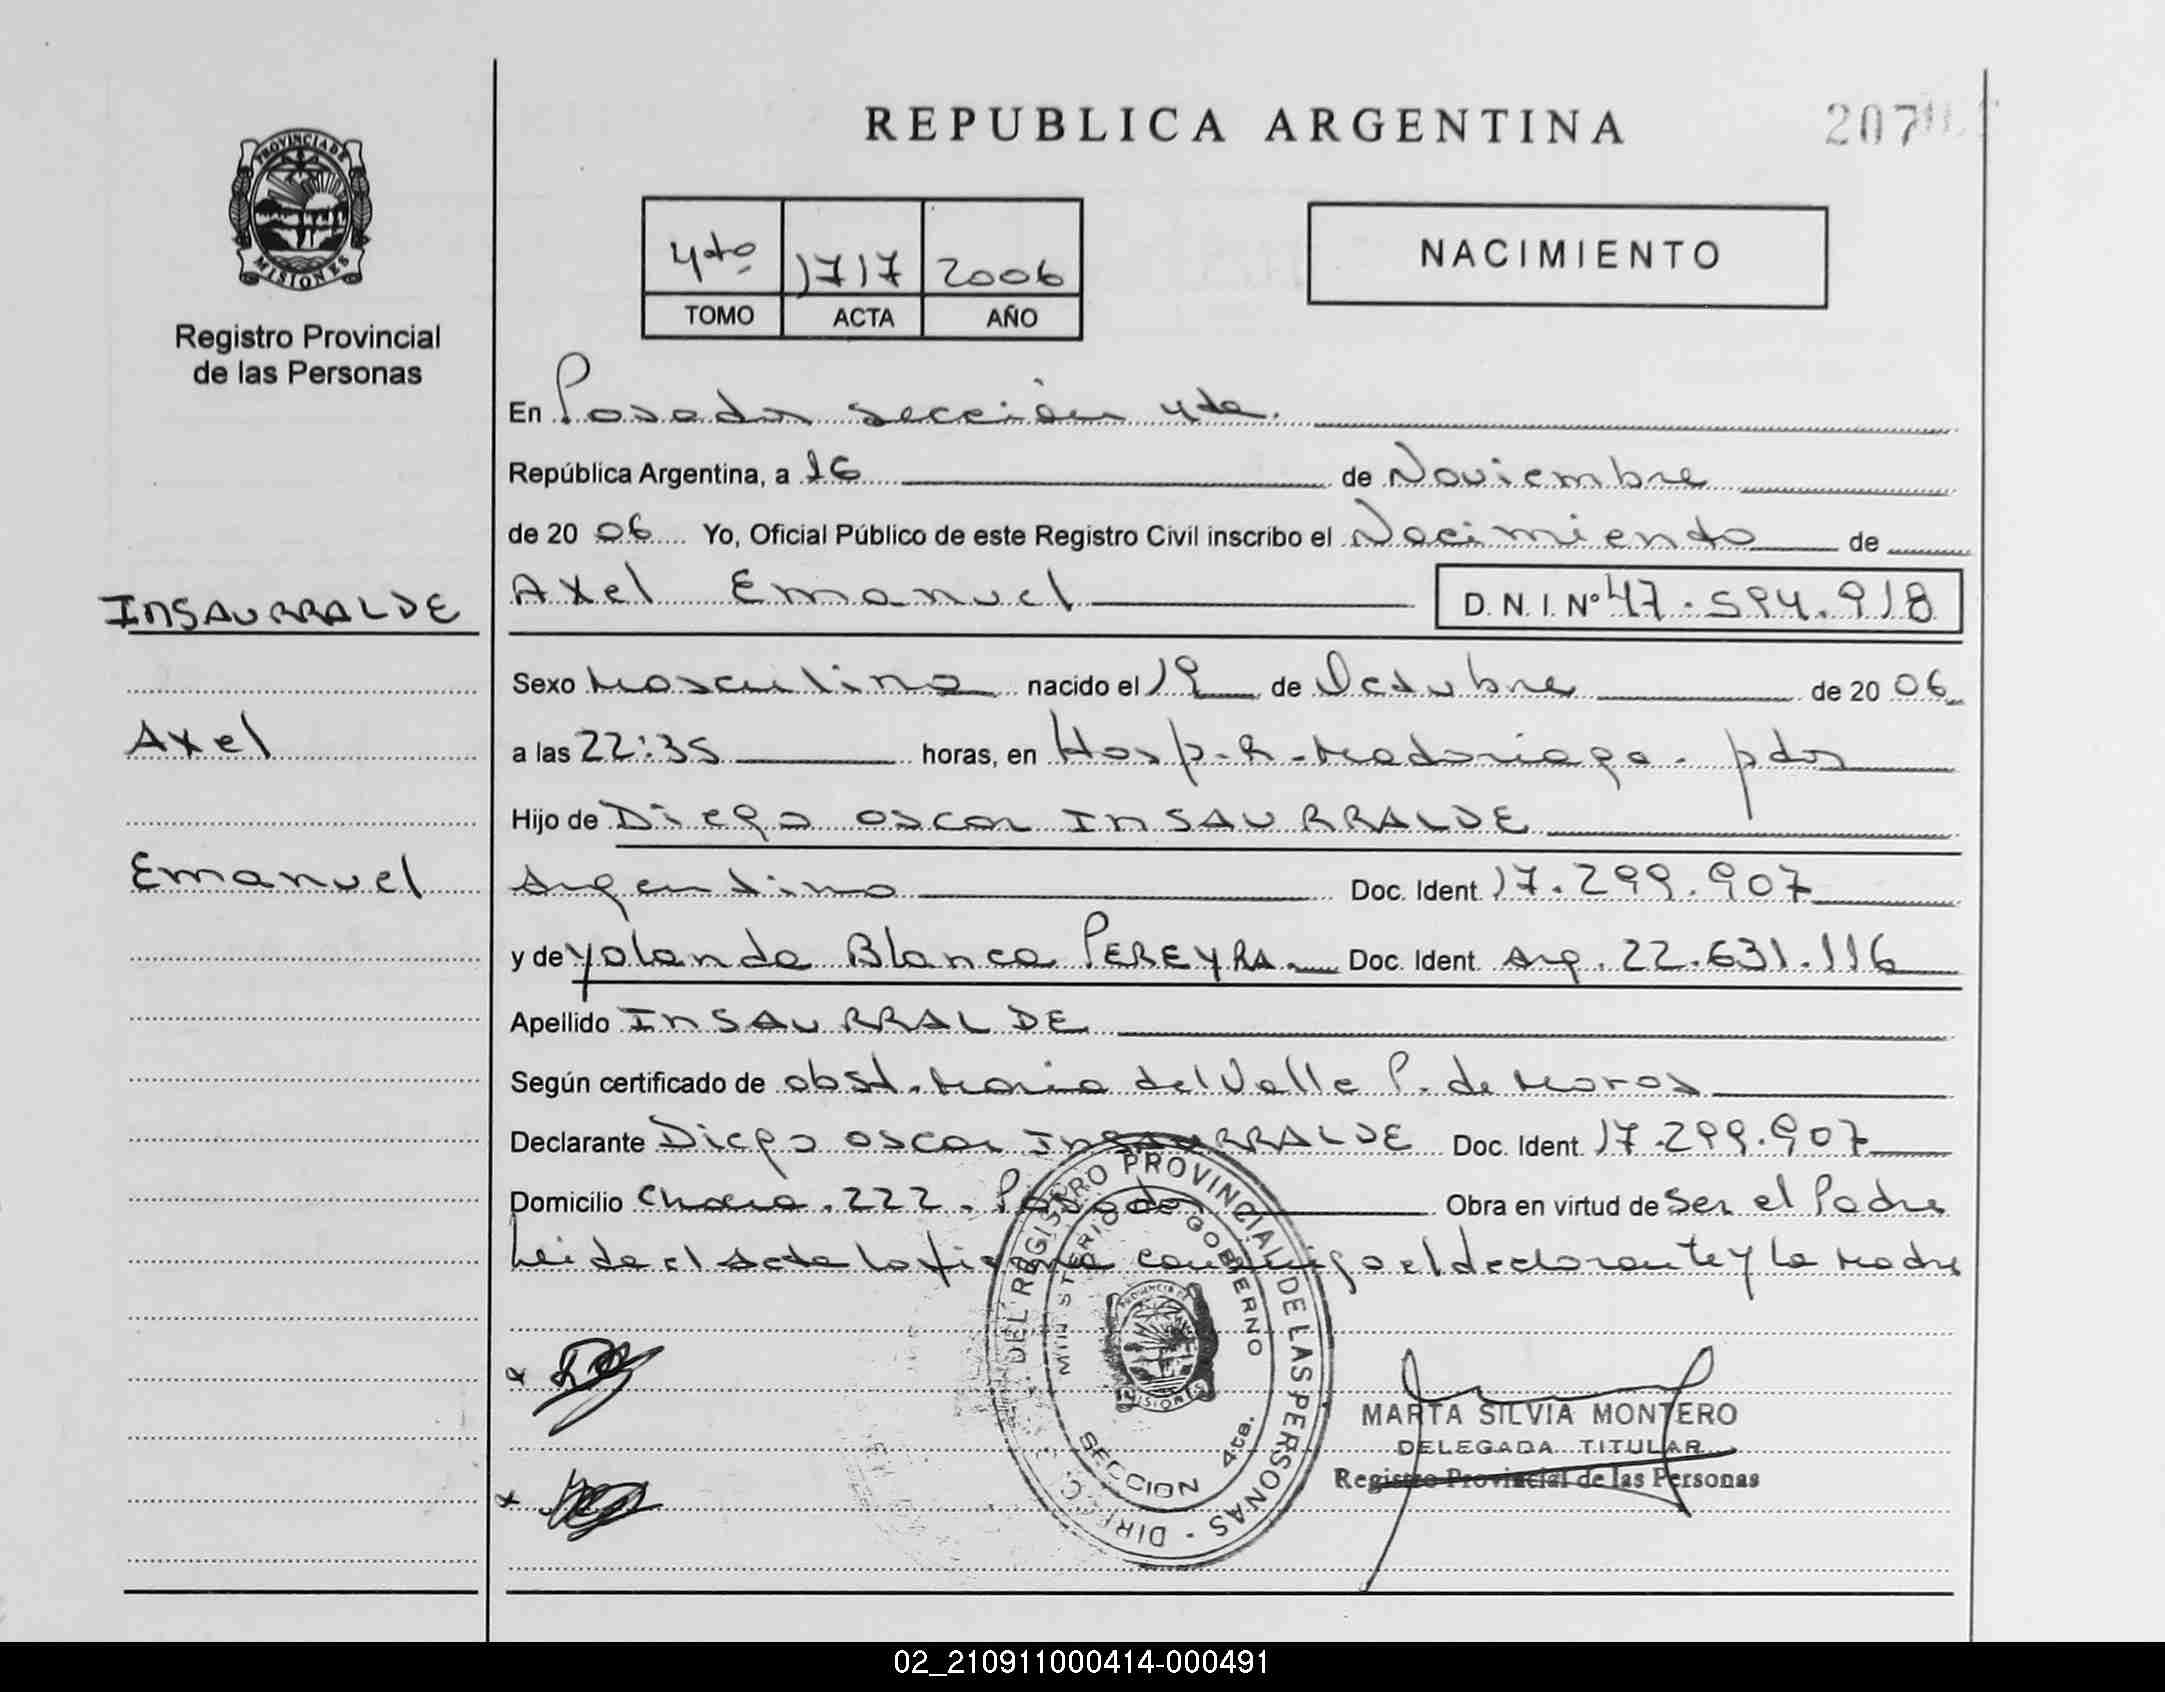 REPUBLICA ARGENTINA
207
PROVINCIA DE
MISIONES
Registro Provincial
de las Personas
4to 1717 2006
TOMO ACTA AÑO
NACIMIENTO
En Posadas sección 4ta.
República Argentina, a 16 de Noviembre
de 20 06 Yo, Oficial Público de este Registro Civil inscribo el Nacimiento de
INSAURRALDE
Axel Emanuel D.N.I. Nº 47.594.918
Sexo Masculino nacido el 19 de Octubre de 20 06
Axel
a las 22:35 horas, en Hosp. R. Madariaga. pdas
Hijo de Diego Oscar INSAURRALDE
Emanuel
Argentino Doc. Ident. 17.299.907
y de Yolanda Blanca PEREYRA. Doc. Ident. Arg. 22.631.116
Apellido INSAURRALDE
Según certificado de obst. Maria del Valle P. de
Declarante Diego Oscar INSAURRALDE Doc. Ident. 17.299.907
Domicilio Chaco. 222. Posadas Obra en virtud de Ser el Padre
Leida el acta la firma conmigo el declarante y la Madre
DEL REGISTRO PROVINCIAL DE LAS PERSONAS - DIREC
MINISTERIO DE GOBIERNO
SECCION 4ta.
MARTA SILVIA MONTERO
DELEGADA TITULAR
Registro Provincial de las Personas
02_210911000414-000491